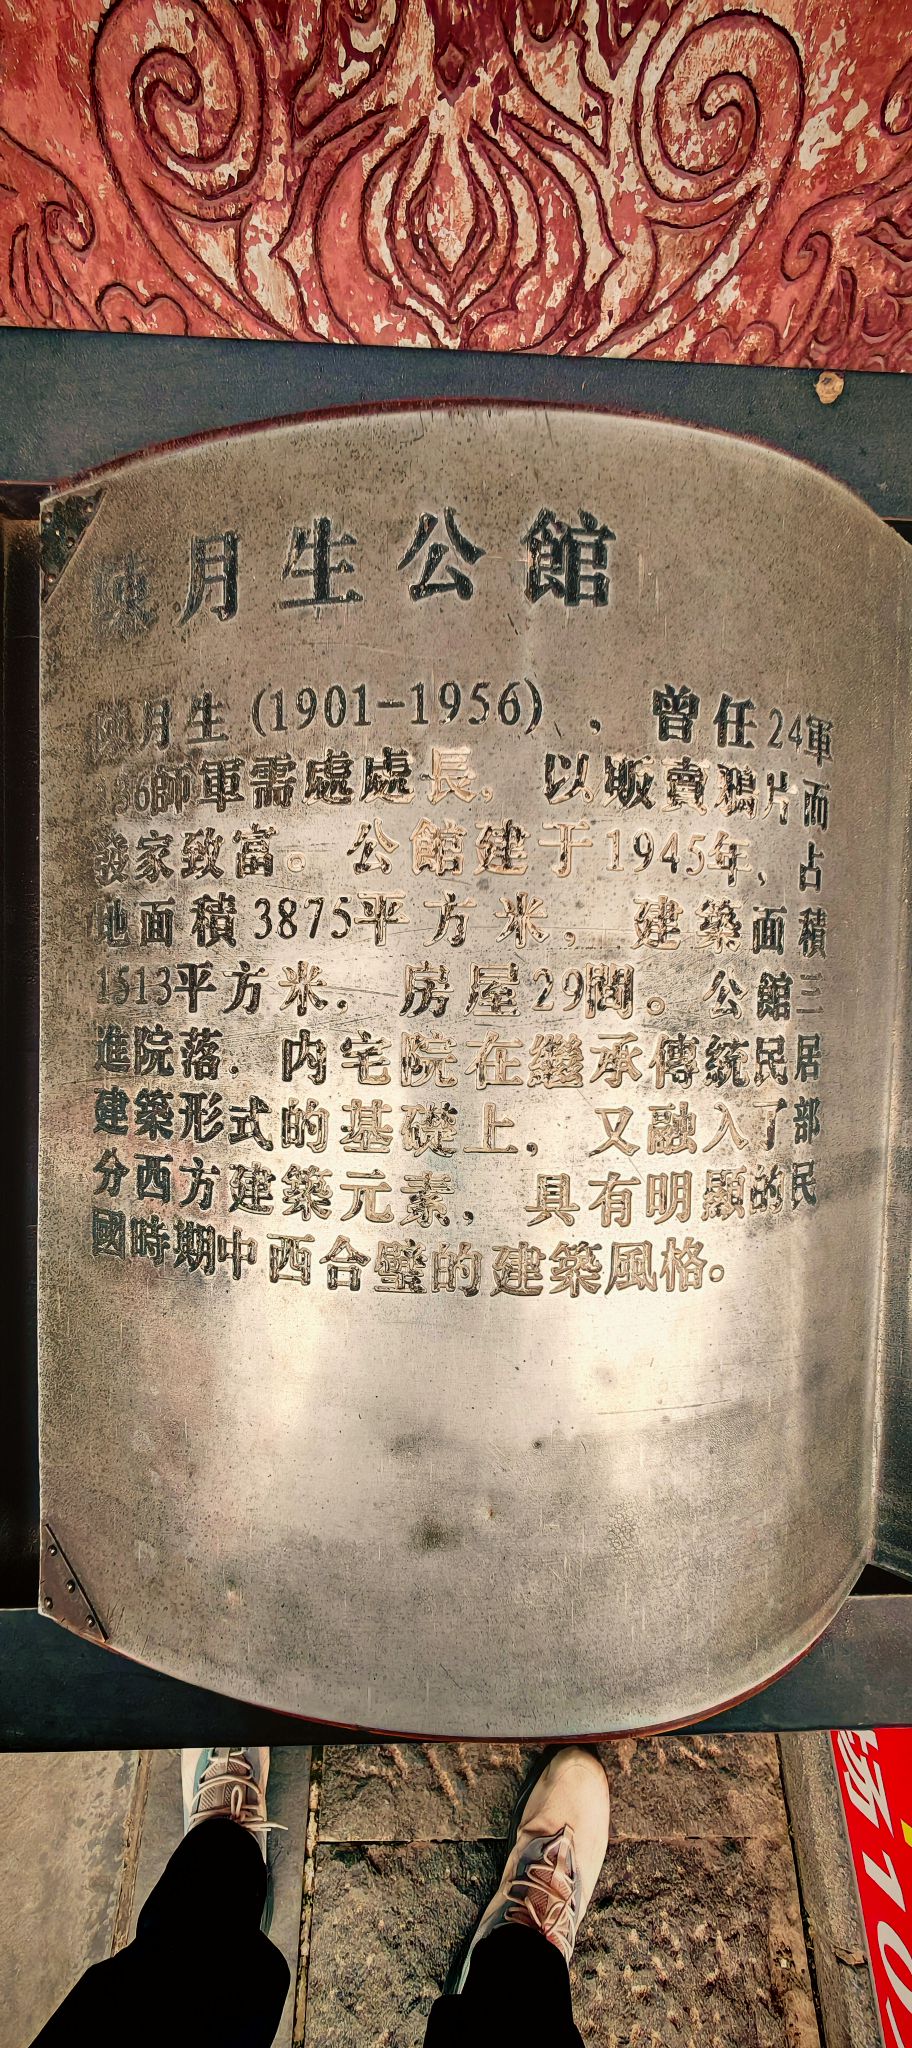 陳月生公館
陳月生(1901-1956)，曾任24軍
136師軍需處處長，以販賣鴉片而
發家致富。公館建于1945年，占
地面積3875平方米，建築面積
1513平方米，房屋29間。公館三
進院落，内宅院在繼承傳統民居
建築形式的基礎上，又融入了部
分西方建築元素，具有明顯的民
國時期中西合璧的建築風格。
10